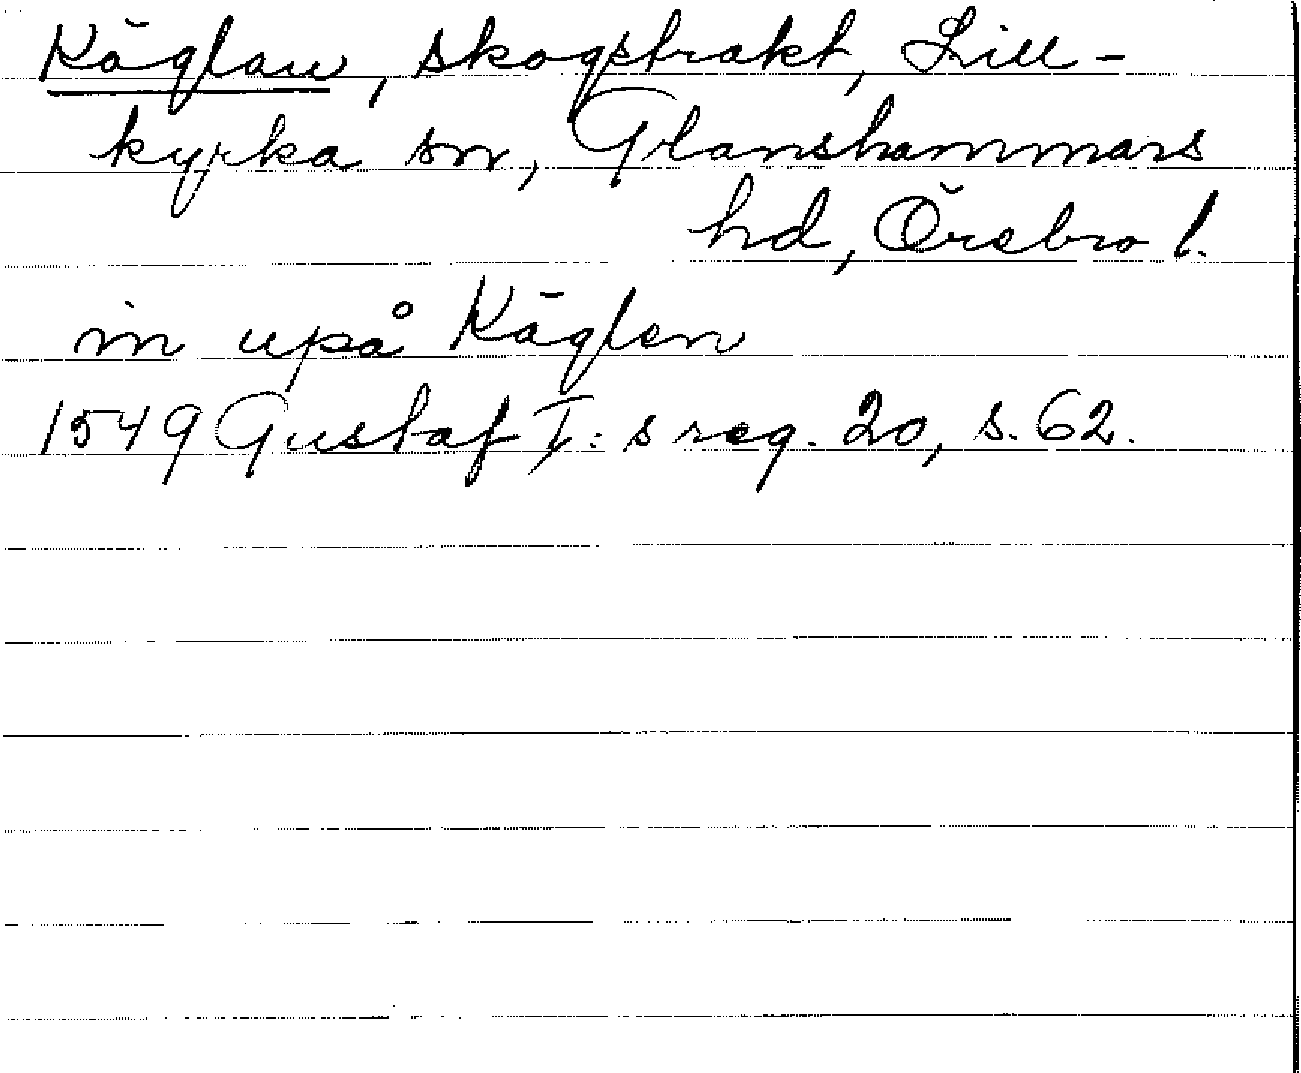 Käglan, skogstrakt, Lill-
kyrka sn, Glanshammars
hd, Örebro l.
in upå Käglen
1549 Gustaf I: s reg. 20, s. 62.